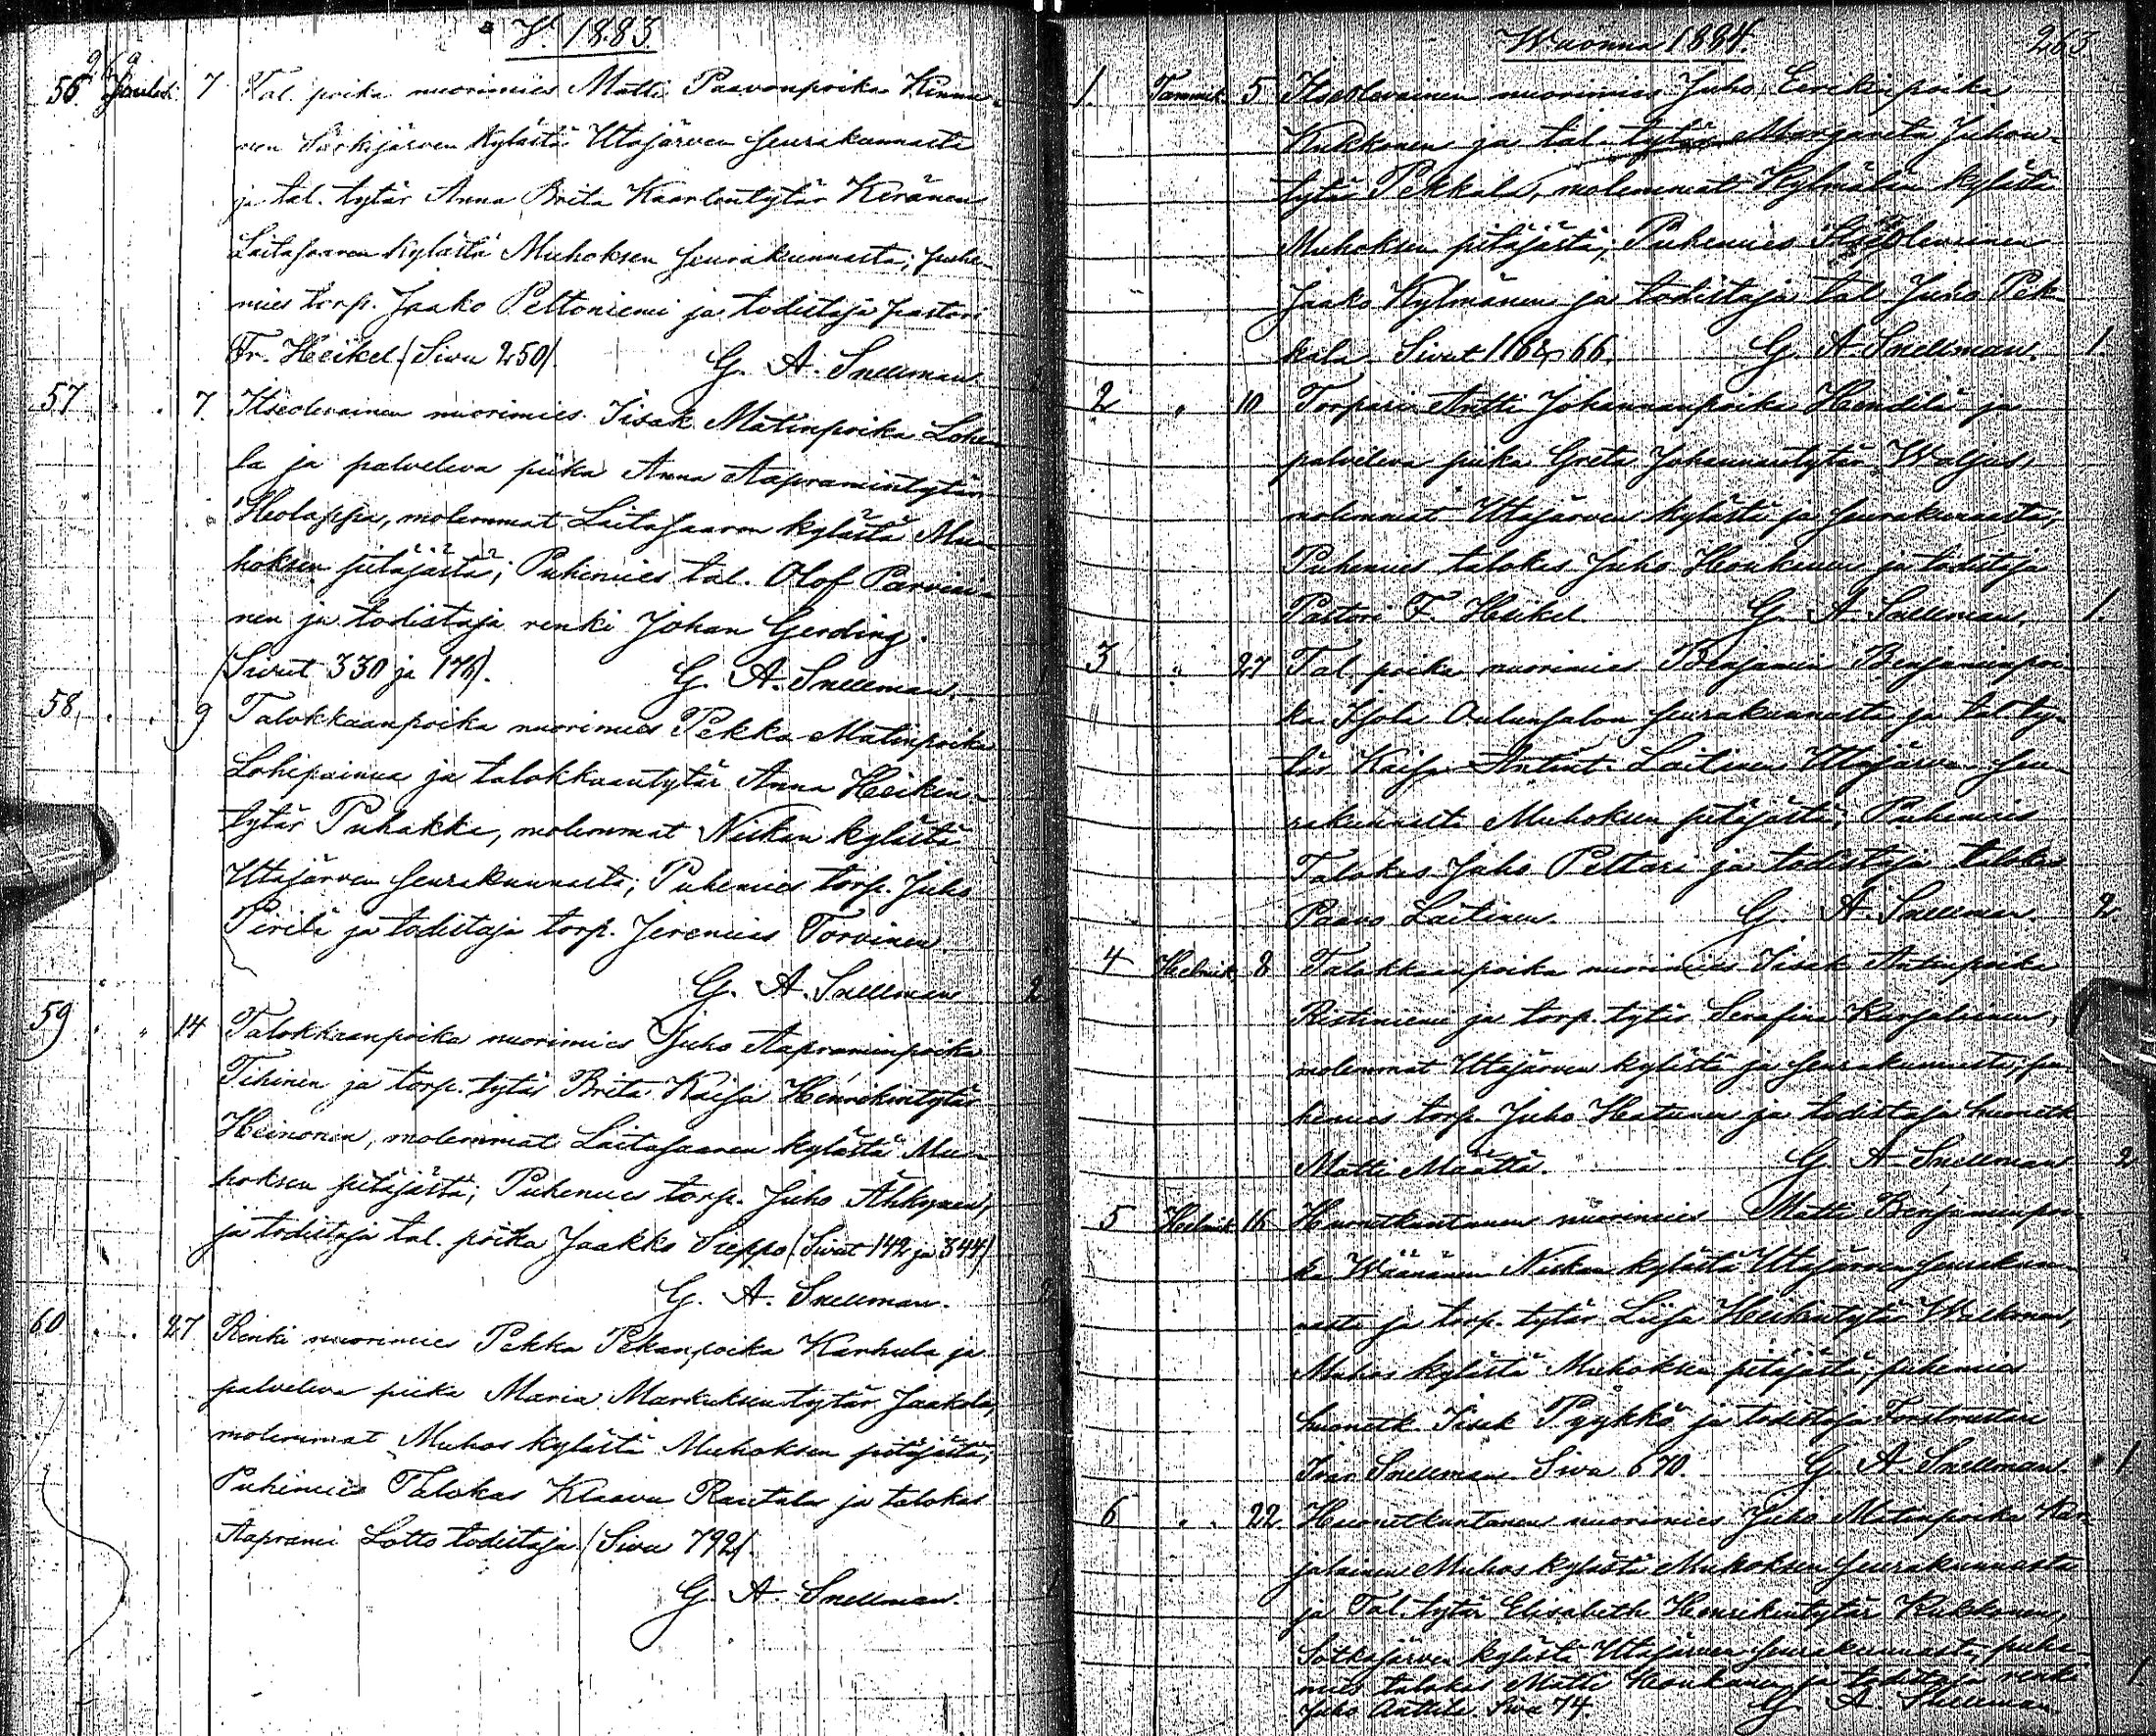 V. 1883.
262
56 Jouluk. 7 Tal. poika nuorimies Matti Paavonpoika Kinnu-
nen Särkijärven kylästä Utajärven seurakunnasta
ja tal. tytär Anna Brita Kaarlontytär Keränen
Laitasaaren kylästä Muhoksen seurakunnasta; puhe-
mies torp. Jaako Peltoniemi ja todistaja pastori
Fr. Heikel. (Sivu 250). G. A. Snellman.
57 " " 7. Itseolevainen nuorimies Iisak Matinpoika Lohe-
la ja palveleva piika Anna Aapramintytär
Holappa, molemmat Laitasaaren kylästä Mu-
hoksen pitäjästä; Puhemies tal. Olof Parviai-
nen ja todistaja renki Johan Gerding.
(Sivut 330 ja 176). G. A. Snellman.
58 " " 9 Talokkaanpoika nuorimies Pekka Matinpoika
Lohipainua ja talokkaantytär Anna Heikin-
tytär Puhakka, molemmat Niskan kylästä
Utajärven seurakunnasta; Puhemies torp. Juho
Pirilä ja todistaja torp. Jeremias Torvinen
G. A. Snellman 2
59 " " 14 Talokkaanpoika nuorimies Juho Aapraminpoika
Tihinen ja torp. tytär Brita Kaisa Henrikintytär
Heinonen, molemmat Laitasaaren kylästä Mu-
hoksen pitäjästä; Puhemies torp. Juho Ähkynen,
ja todistaja tal. poika Jaakko Sieppo (Sivut 142 ja 344)
G. A. Snellman. 2
60 " " 27 Renki nuorimies Pekka Pekanpoika Karhula ja
palveleva piika Maria Markuksentytär Jaakola,
molemmat Muhos kylästä Muhoksen pitäjästä;
Puhemies Talokas Klaavu Rautala ja talokas
Aaprami Lotto todistaja. (Sivu 792).
G. A. Snellman.
Wuonna 1884. 263
1. Tammik. 5 Itseolevainen nuorimies Juho Eerikinpoika
Kukkonen ja tal. tytär Margareta Juhon-
tytär Pekkala, molemmat Kylmälän kylästä
Muhoksen pitäjästä; Puhemies Itseolevainen
Jaako Kylmänen ja todistaja tal. Juho Pek-
kala. Sivut 1162, 66. G. A. Snellman. 1.
2 " 10 Torpari Antti Johannanpoika Hendilä ja
palveleva piika Greta Johannantytär Waljus,
molemmat Utajärven kylästä ja seurakunnasta;
Puhemies talokas Juho Honkanen ja todistaja
Pastori F. Heikel. G. A. Snellman. 1.
3 " 27 Tal. poika nuorimies Benjamin Benjaminpoi-
ka Isola Oulunsalon seurakunnasta ja tal. ty-
tär Kaisa Antint. Laitinen Utajärven seu-
rakunnasta Muhoksen pitäjästä; Puhemies
Talokas Juho Peltari ja todistaja talokas
Paavo Laitinen. G. A. Snellman. 2
4 Helmik. 8 Talokkaanpoika nuorimies Iisak Antinpoika
Ristiniemi ja torp. tytär Serafina Karjalainen,
molemmat Utajärven kylästä ja seurakunnasta; pu-
hemies torp. Juho Heatunen ja todistaja huonetk.
Matti Määttä. G. A. Snellman 2
5 Helmik. 16 Huonetkuntanen nuorimies Matti Benjaminpoi-
ka Väänänen Niskan kylästä Utajärven seurakun-
nasta ja torp. tytär Liisa Heikintytär Walkonen,
Muhos kylästä Muhoksen pitäjästä; puhemies
huonetk. Iisak Pyykkö ja todistaja Forstmestari
Ivar Snellman. Sivu 670. G. A. Snellman. 1
6 " " 22. Huonetkuntanen nuorimies Juho Matinpoika Kar-
jalainen Muhos kylästä Muhoksen seurakunnasta
ja Tal. tytär Elisabeth Henrikintytär Kukkonen,
Sotkajärven kylästä Utajärven seurakunnasta, puhe-
mies talokas Matti Honkanen ja todistaja renki
Juho Anttila. Sivu 74. G. A. Snellman. 1